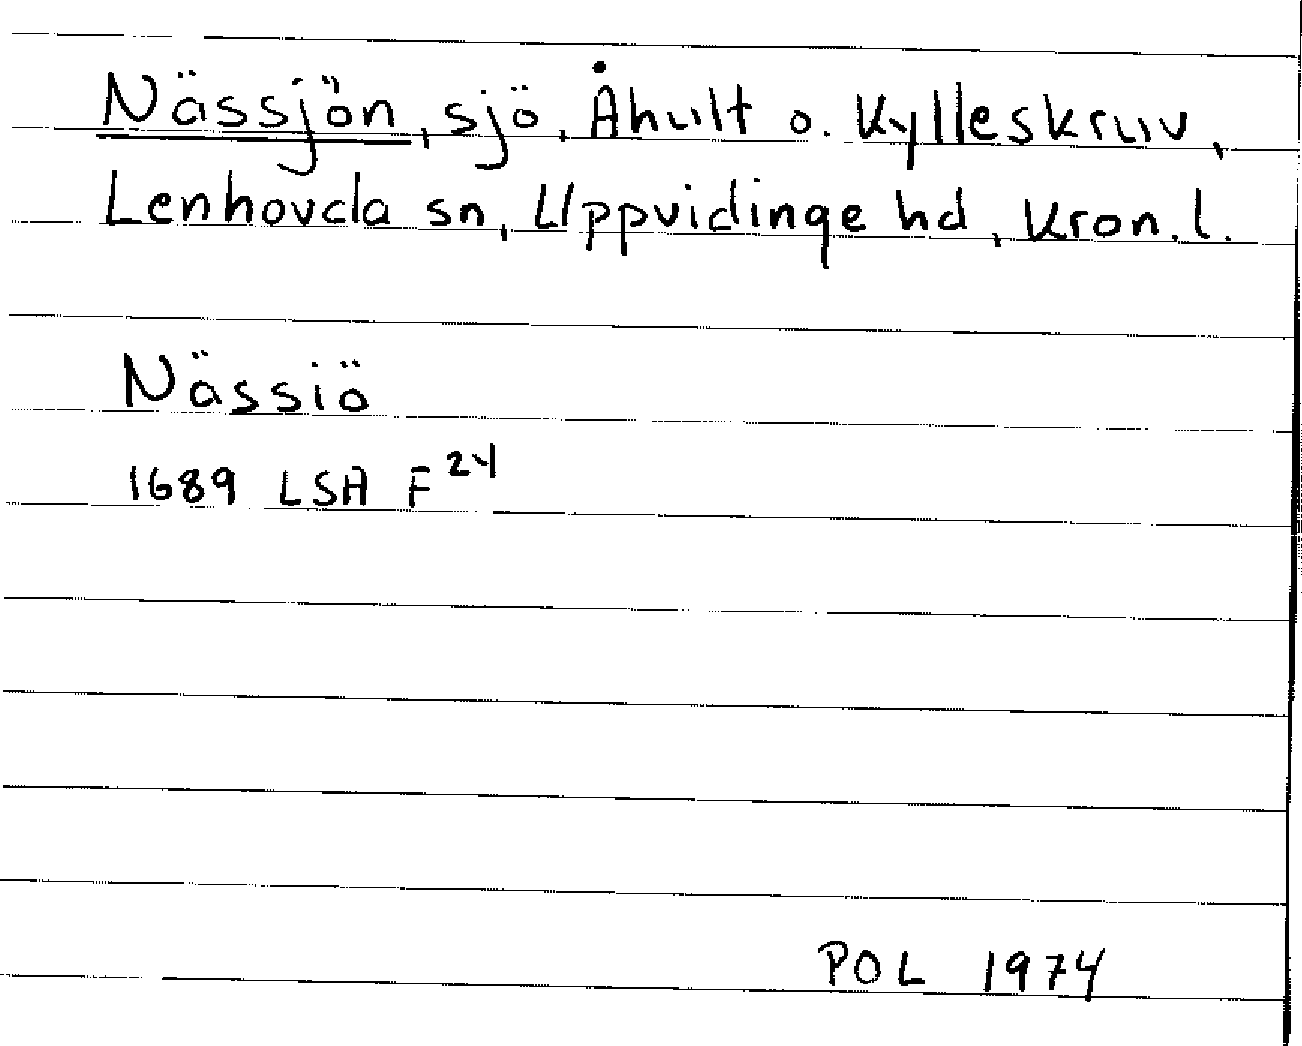 Nässjön, sjö, Åhult o. Kylleskruv,
Lenhovda sn, Uppvidinge hd, Kron. l.
Nässiö
1689 LSA F 24
POL 1974